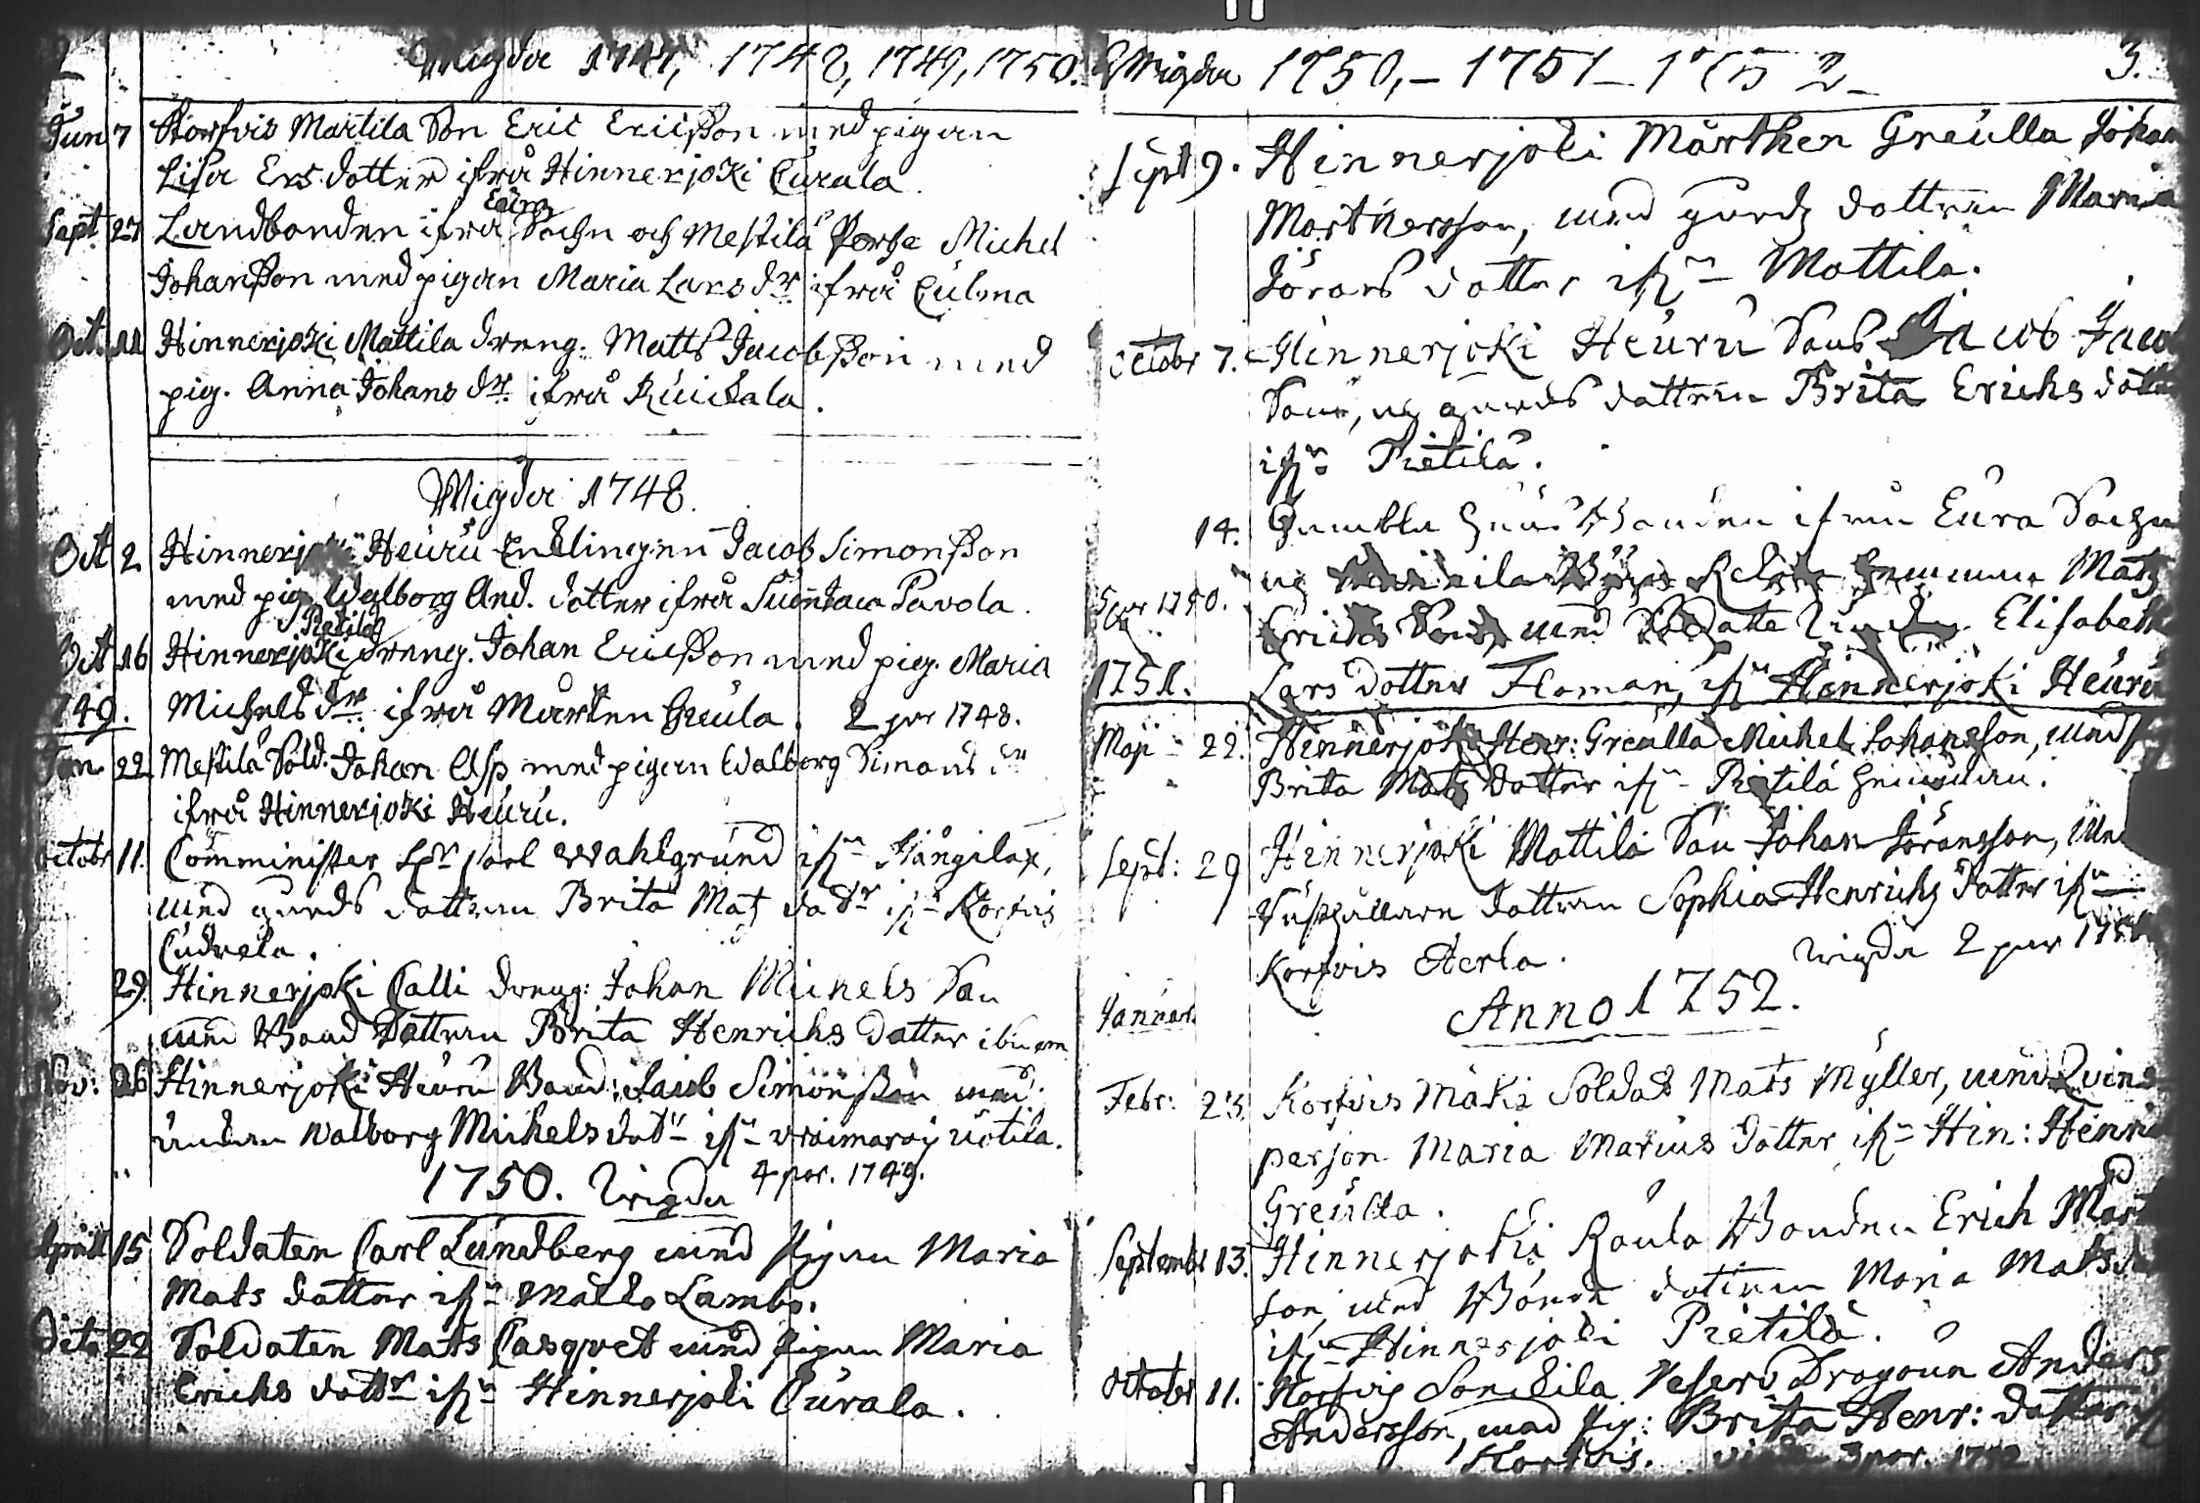 Wigda 1747, 1748, 1749, 1750.
Jun 7 Korfvis Martila Son Eric Ericsson med pigan
Lisa Ers dotter ifrå Hinnerjoki Curala.
Eura
Sept. 27 Landbonden ifrå Sochn och Mestilä Perhe Michel
Johansson med pigan Maria Lars dr. ifrå Culma
Oct. 11 Hinnerjoki Mattila dreng. Matts Jacobsson med
pig. Anna Johans dr. ifrå Ruickala.
Wigda 1748.
Oct 2 Hinnerjoki Heuru Enklingen Jacob Simonsson
med pig. Walborg And. dotter ifrå Pavola.
Pietilä
Oct 16 Hinnerjoki dreng. Johan Ericsson med pig. Maria
Michels dr. ifrå Mårten Greula. 2 par 1748.
1749.
Jan 22 Mestilä Sold. Johan Asp med pigan Walborg Simons dr
ifrå Hinnerjoki Heuru.
Octobr 11. Comminister Hr Carl Wahlgrund ifrn Hångilax,
med gårds dottren Brita Mats dotr ifrn Korfvis
Cudvela.
29. Hinnerjoki Calli dreng: Johan Michels Son
med Bond dottren Brita Henrichs dotter ibidem
Nov: 26 Hinnerjoki Heuru Bond: Jacob Simonsson med
änkan Walborg Michels dotr ifrn Uotila.
4 par. 1749.
1750. Wigda
Aprill 15 Soldaten Carl Lundberg med Pigan Maria
Mats dotter ifrn Lambo.
Octo 22 Soldaten Mats Casqvet med Pigan Maria
Erichs dottr ifrn Hinnerjoki Curala.
Wigda 1750, - 1751 - 1752 - 3.
Sept 9. Hinnerjoki Mårthen Greulla Johan
Mårthensson, med gårds dottren Maria
Jörans dotter ifrn Mattila.
Octobr 7. Hinnerjoki Heuru Sons Jacob Jacob
Son, og gårds dottren Brita Erichs dotter
ifrn Pietilä.
14. Gambla Bonden ifrån Eura Sochn
og Mats
Erichs Son, med Elisabeth
5 par 1750.
Lars dotter Floman, ifrn Hinnerjoki Heuru
1751.
Maji 22. Hinnerjoki Henr: Greulla Michel Johansson, med
Brita Mats dotter ifrn Pietilä hemman.
Sept: 29 Hinnerjoki Mattila Son Johan Jöransson, med
dottren Sophia Henrichs dotter ifrn
Korfvis Aerla. Wigda 2 par 1751
Anno 1752.
Januari
Febr: 23. Korfvis Mäki Soldat Mats Myller, med Qvins
person Maria Marcus dotter ifrn Hin: Henri
Greulla.
Septembr 13. Hinnerjoki Raula Bonden Erich Mårt
son, med Bonde dottren Maria Mats
ifrn Hinnerjoki Pietilä.
Octobr 11. Korfvis Sonckila Reserv Dragoun Anders
Andersson, med Pig: Brita Henr: dotter
Korfvis. 3 par. 1752